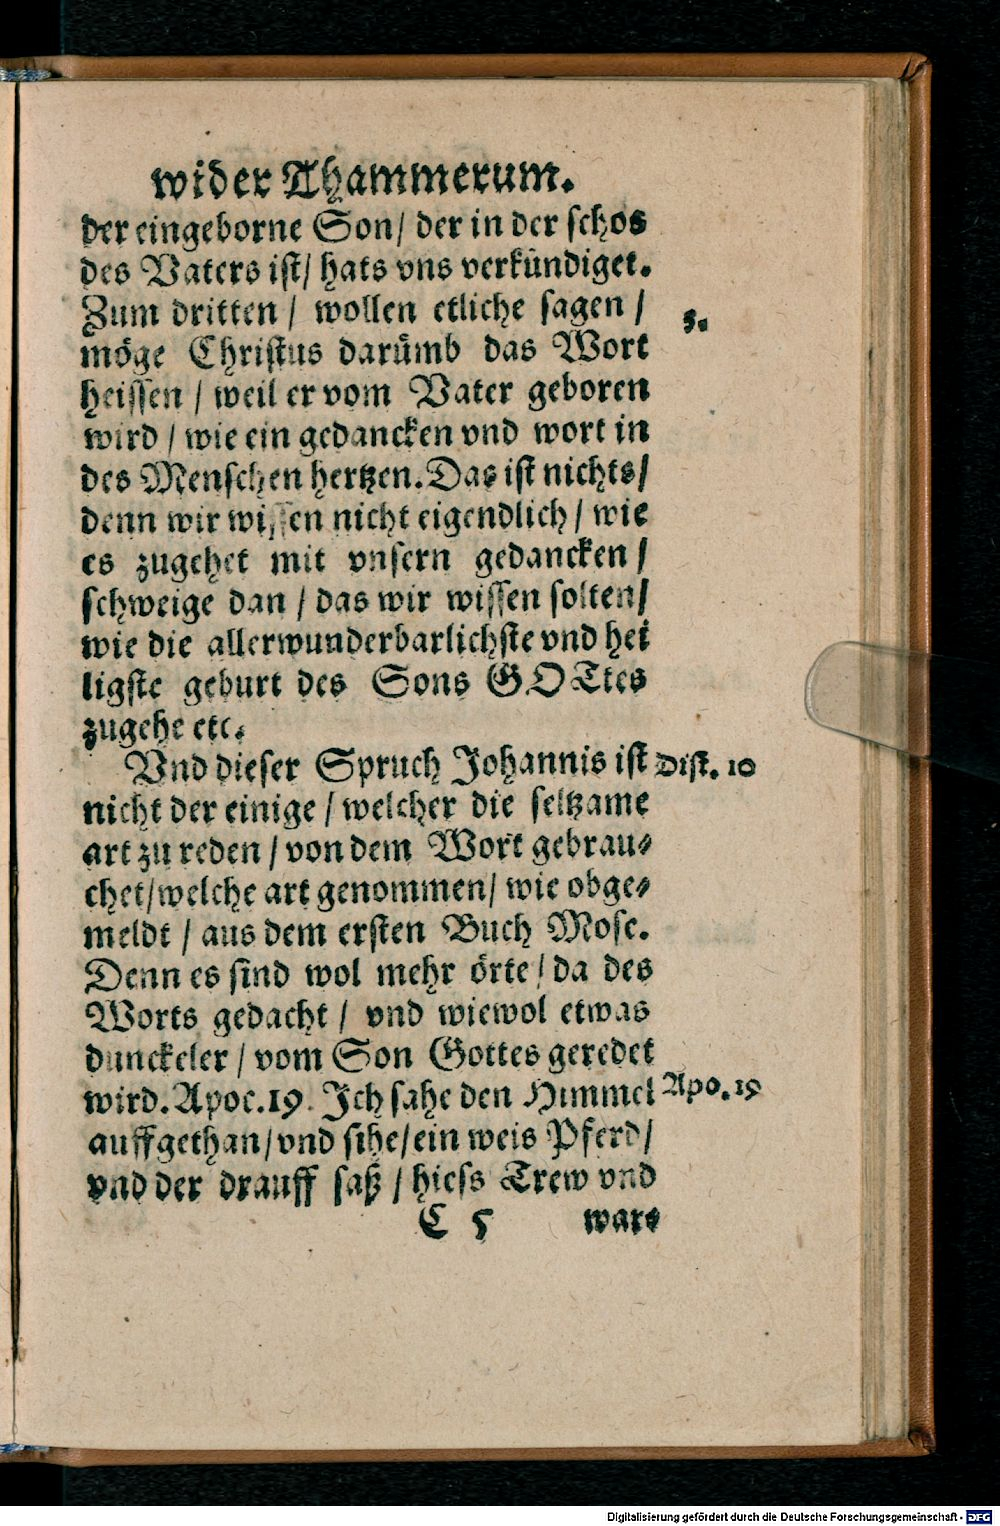 wider Thammerum.
der eingeborne Son/ der in der schos
des Vaters ist/ hats vns verkündiget.
Zum dritten / wollen etliche sagen /
3.
möge Christus darümb das Wort
heissen / weil er vom Vater geboren
wird / wie ein gedancken vnd wort in
des Menschen hertzen. Das ist nichts/
denn wir wissen nicht eigendlich / wie
es zugehet mit vnsern gedancken /
schweige dan / das wir wissen solten/
wie die allerwunderbarlichste vnd hei
ligste geburt des Sons GOTtes
zugehe etc.
Vnd dieser Spruch Johannis ist
Dist. 10
nicht der einige / welcher die seltzame
art zu reden / von dem Wort gebrau-
chet/welche art genommen/ wie obge-
meldt / aus dem ersten Buch Mose.
Denn es sind wol mehr örte / da des
Worts gedacht / vnd wiewol etwas
dunckeler / vom Son Gottes geredet
wird. Apoc. 19. Ich sahe den Himmel
Apo. 19
auffgethan/vnd sihe/ein weis Pferd/
vnd der drauff saß / hiess Trew vnd
C 5 war-
Digitalisierung gefördert durch die Deutsche Forschungsgemeinschaft - DFG